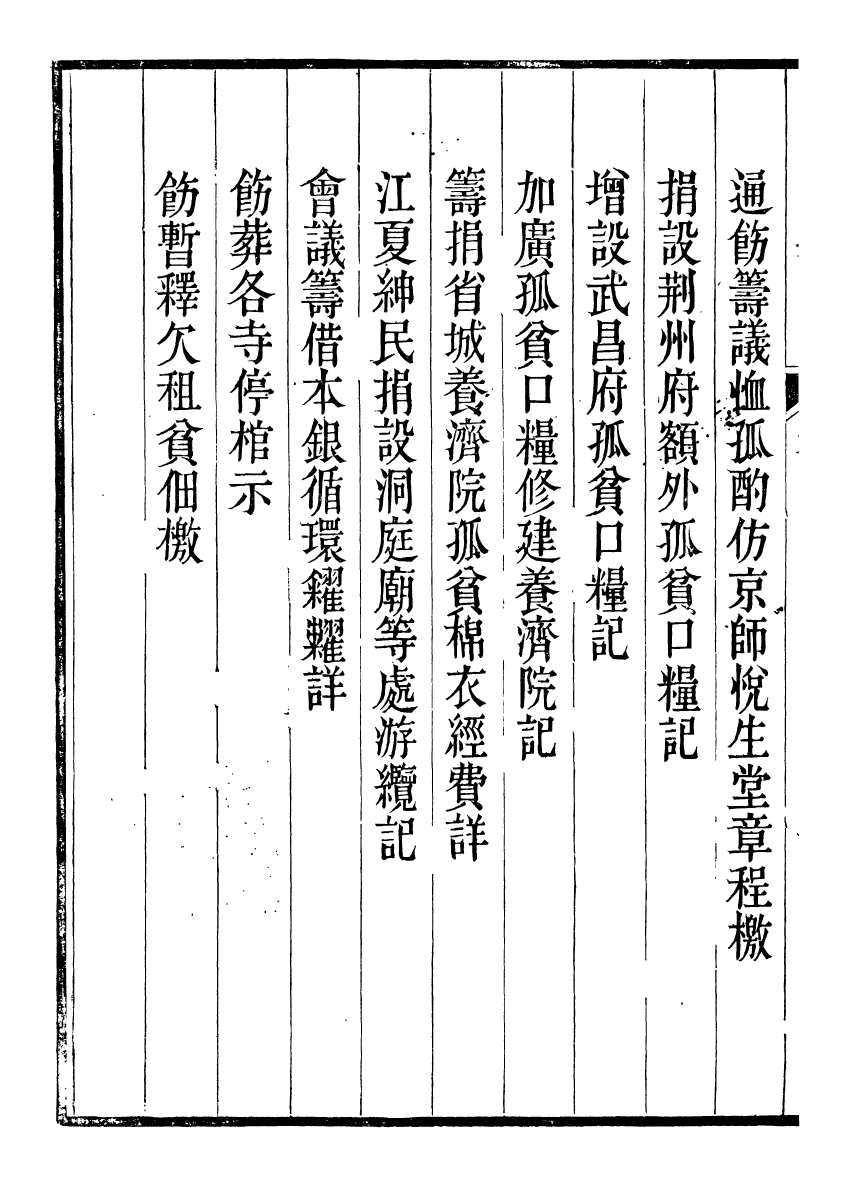 通飭籌議恤孤酌仿京師悅生堂章程檄
捐設荆州府額外孤貧口糧記
增設武昌府孤貧口糧記
加廣孤貧口糧修建養濟院記
籌捐省城養濟院孤貧棉衣經費詳
江夏紳民捐設洞庭廟等處游纜記
會議籌借本銀循環糴糶詳
飭葬各寺停棺示
飭暫釋欠租貧佃檄